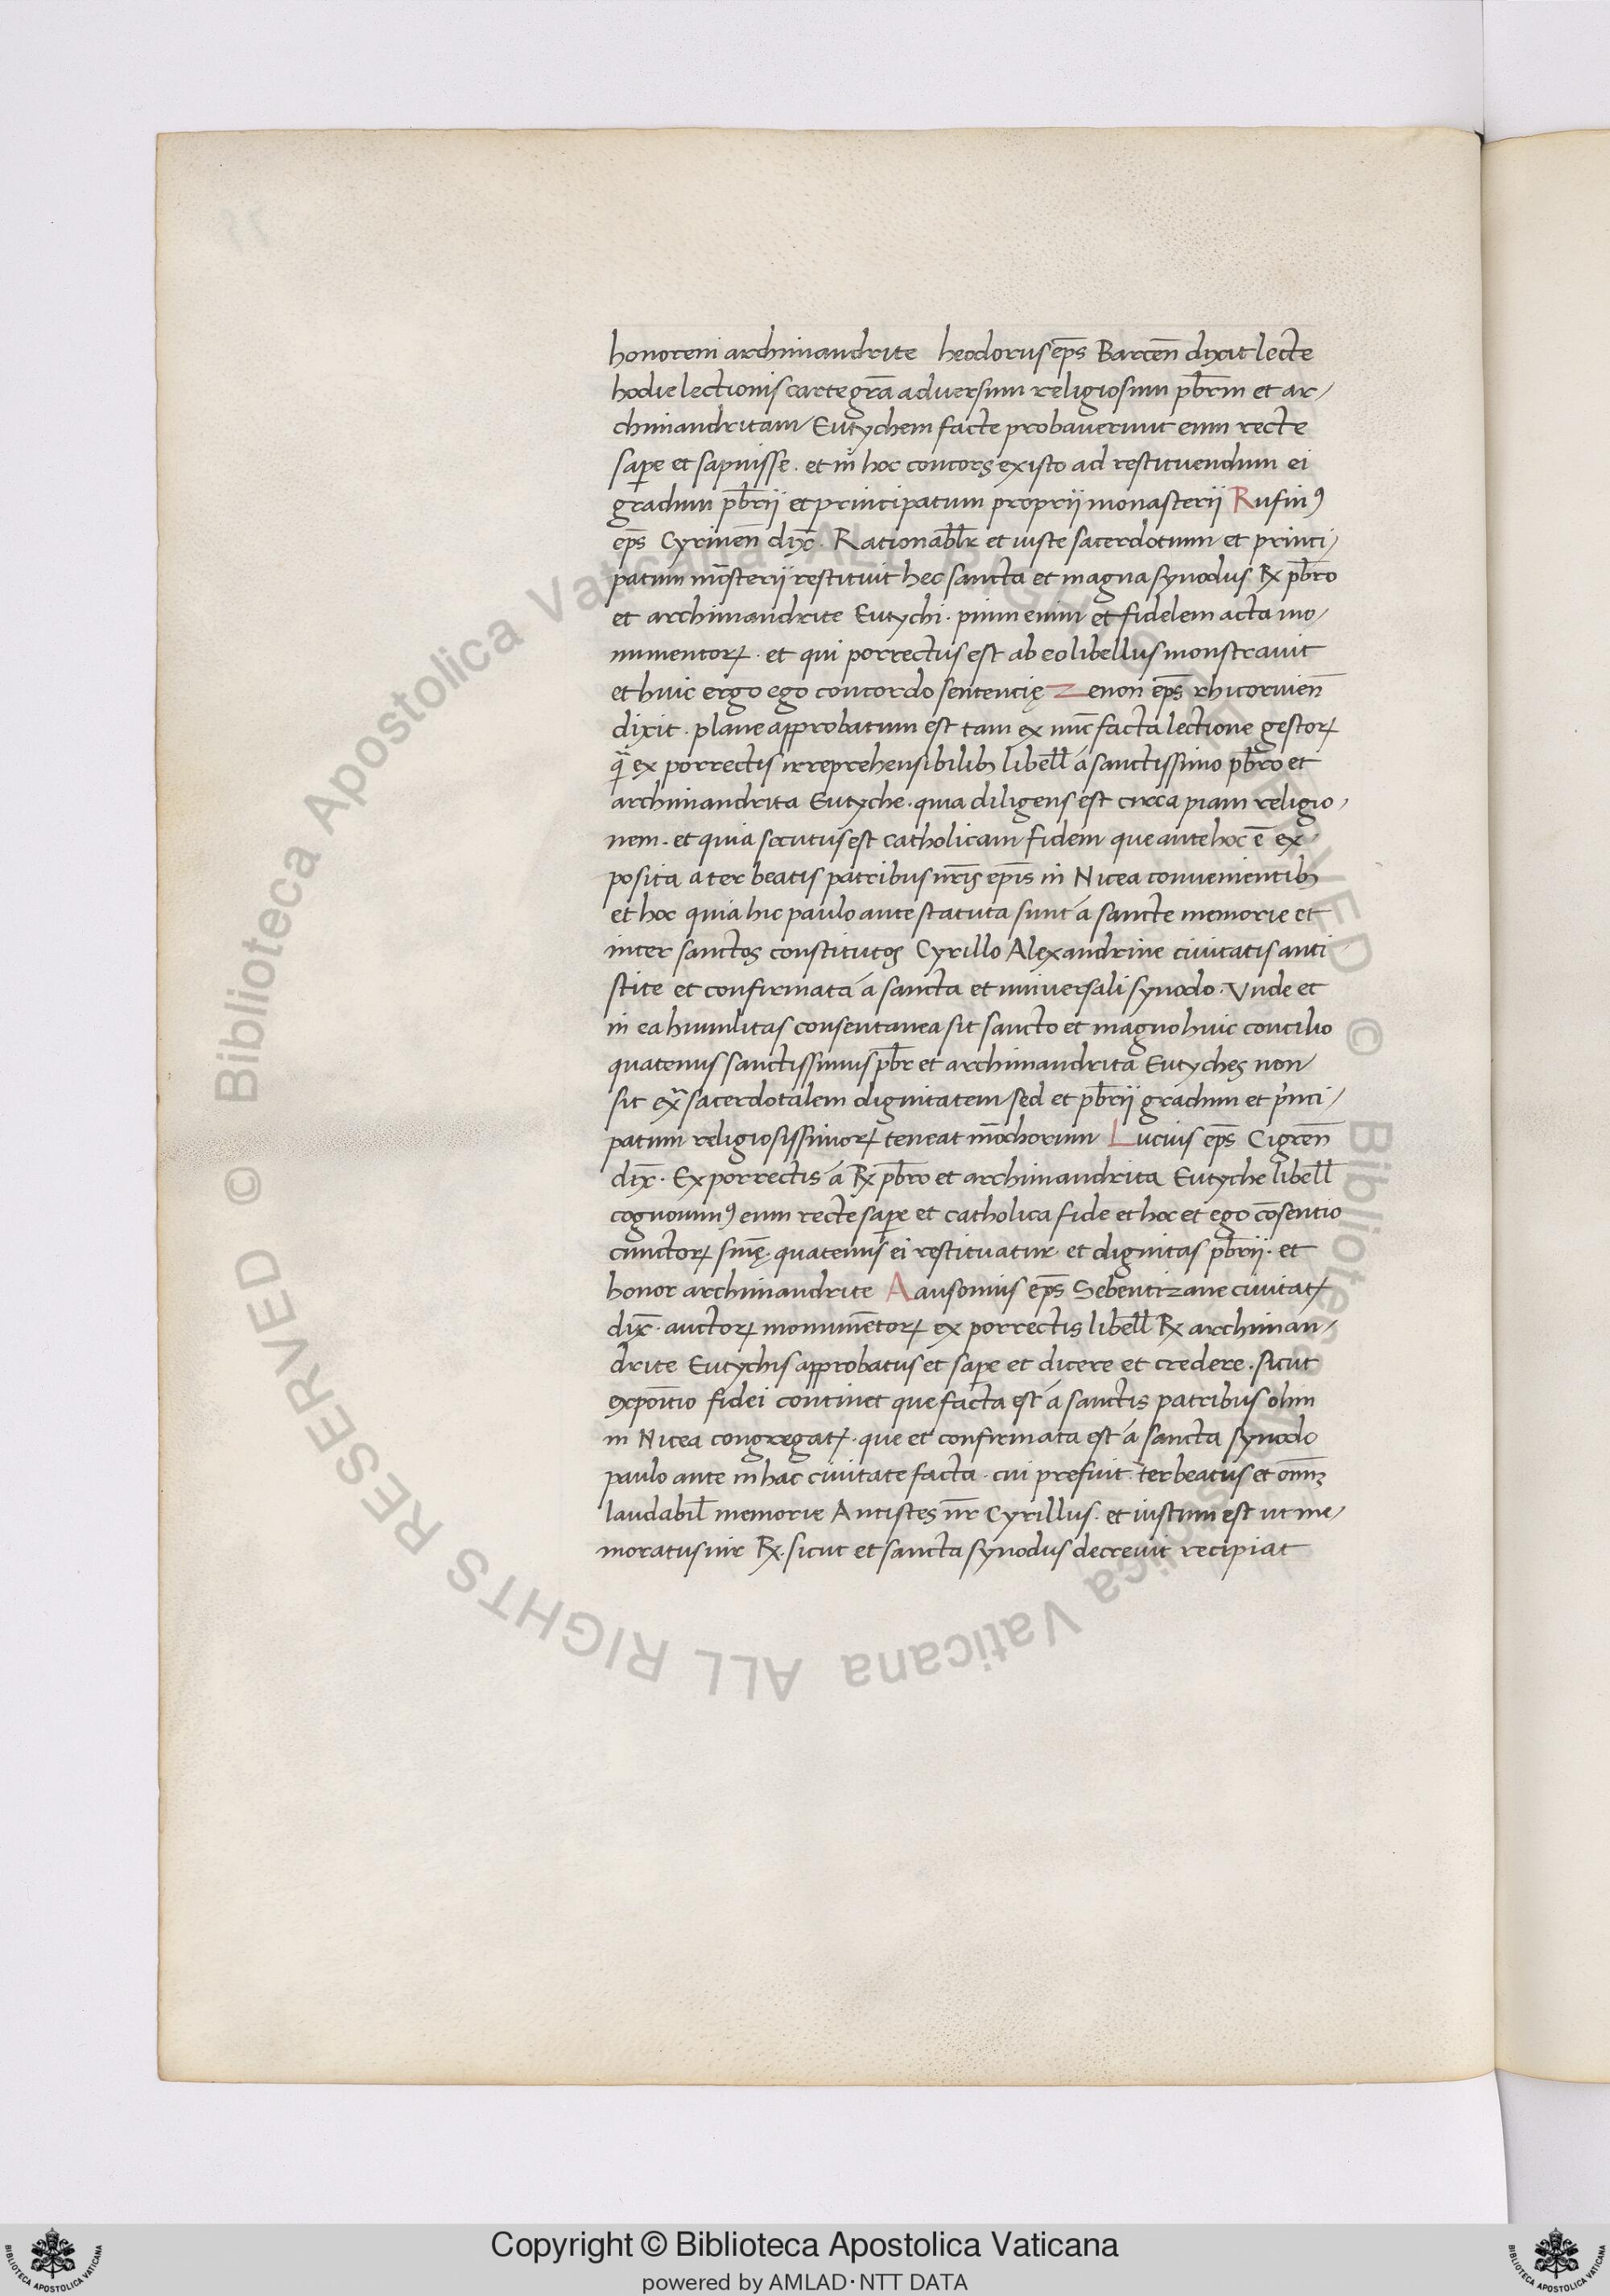 honorem archimandrite heodorus ep̄s Barcen̄ dixit lecte
hodie lectionis carte gr̄a adversum religiosum pb̄rm et ar-
chimandritam Eutychem facte probaverunt eum recte
saꝑe et sapuisse. et in hoc concors existo ad restituendum ei
gradum pb̄rii et principatum proprii monasterii Rufinꝰ
ep̄s Cyrinen̄ dix̄. Rationabl̄r et iuste sacerdotium et princi-
patum mo̅sterii restituit hec sancta et magna synodus R̷x pb̄ro
et archimandrite Eutychi. pium enim et fidelem acta mo-
numentoꝝ. et qui porrectus est ab eo libellus monstravit
et huic ergo ego concordo sentencię Zenon ep̄s rhicorvien̄
dixit. plane approbatum est tam ex nūc facta lectione gestoꝝ
qᷓ ex porrectis irreprehensibilibꝫ libell̄ á sanctissimo pb̄ro et
archimandrita Eutyche. quia diligens est circa piam religio-
nem. et quia secutus est catholicam fidem que ante hoc ē ex-
posita a ter beatis patribus nr̄is ep̄is in Nicea convenientibꝫ
et hoc quia hic paulo ante statuta sunt á sancte memorie et
inter sanctos constitutos Cyrillo Alexandrine civitatis anti-
stite et confirmata á sancta et universali synodo. Unde et
in ea humilitas consentanea sit sancto et magno huic concilio
quatenus sanctissimus pb̄r et archimandrita Eutyches non
sit exᷓ sacerdotalem dignitatem sed et pb̄rii gradum et pͥnci-
patum religiosissimoꝝ teneat mōchorum Lucius ep̄s Cigren̄
dix̄. Ex porrectis á R̷x pb̄ro et archimandrita Eutyche libell̄
cognovimꝰ eum recte saꝑe et catholica fide et hoc et ego cōsentio
cunctoꝝ sn̄ię. quatenus ei restituatur et dignitas pb̄rii. et
honor archimandrite Aausonius ep̄s Sebentizane civitatꝭ
dix̄. auctoꝝ monumētoꝝ ex porrectis libell̄ R̷x archiman-
drite Eutychis approbatus et saꝑe et dicere et credere. sicut
expōitio fidei continet que facta est á sanctis patribus olim
in Nicea congregatꝭ. que et confirmata est á sancta synodo
paulo ante in hac civitate facta. cui prefuit ter beatus et om̄ĩꝫ
laudabil̄ memorie Antistes nr̄ Cyrillus. et iustum est ut me-
moratus vir R̷x. sicut et sancta synodus decrevit recipiat
Copyright © Biblioteca Apostolica Vaticana
powered by AMLAD·NTT DATA